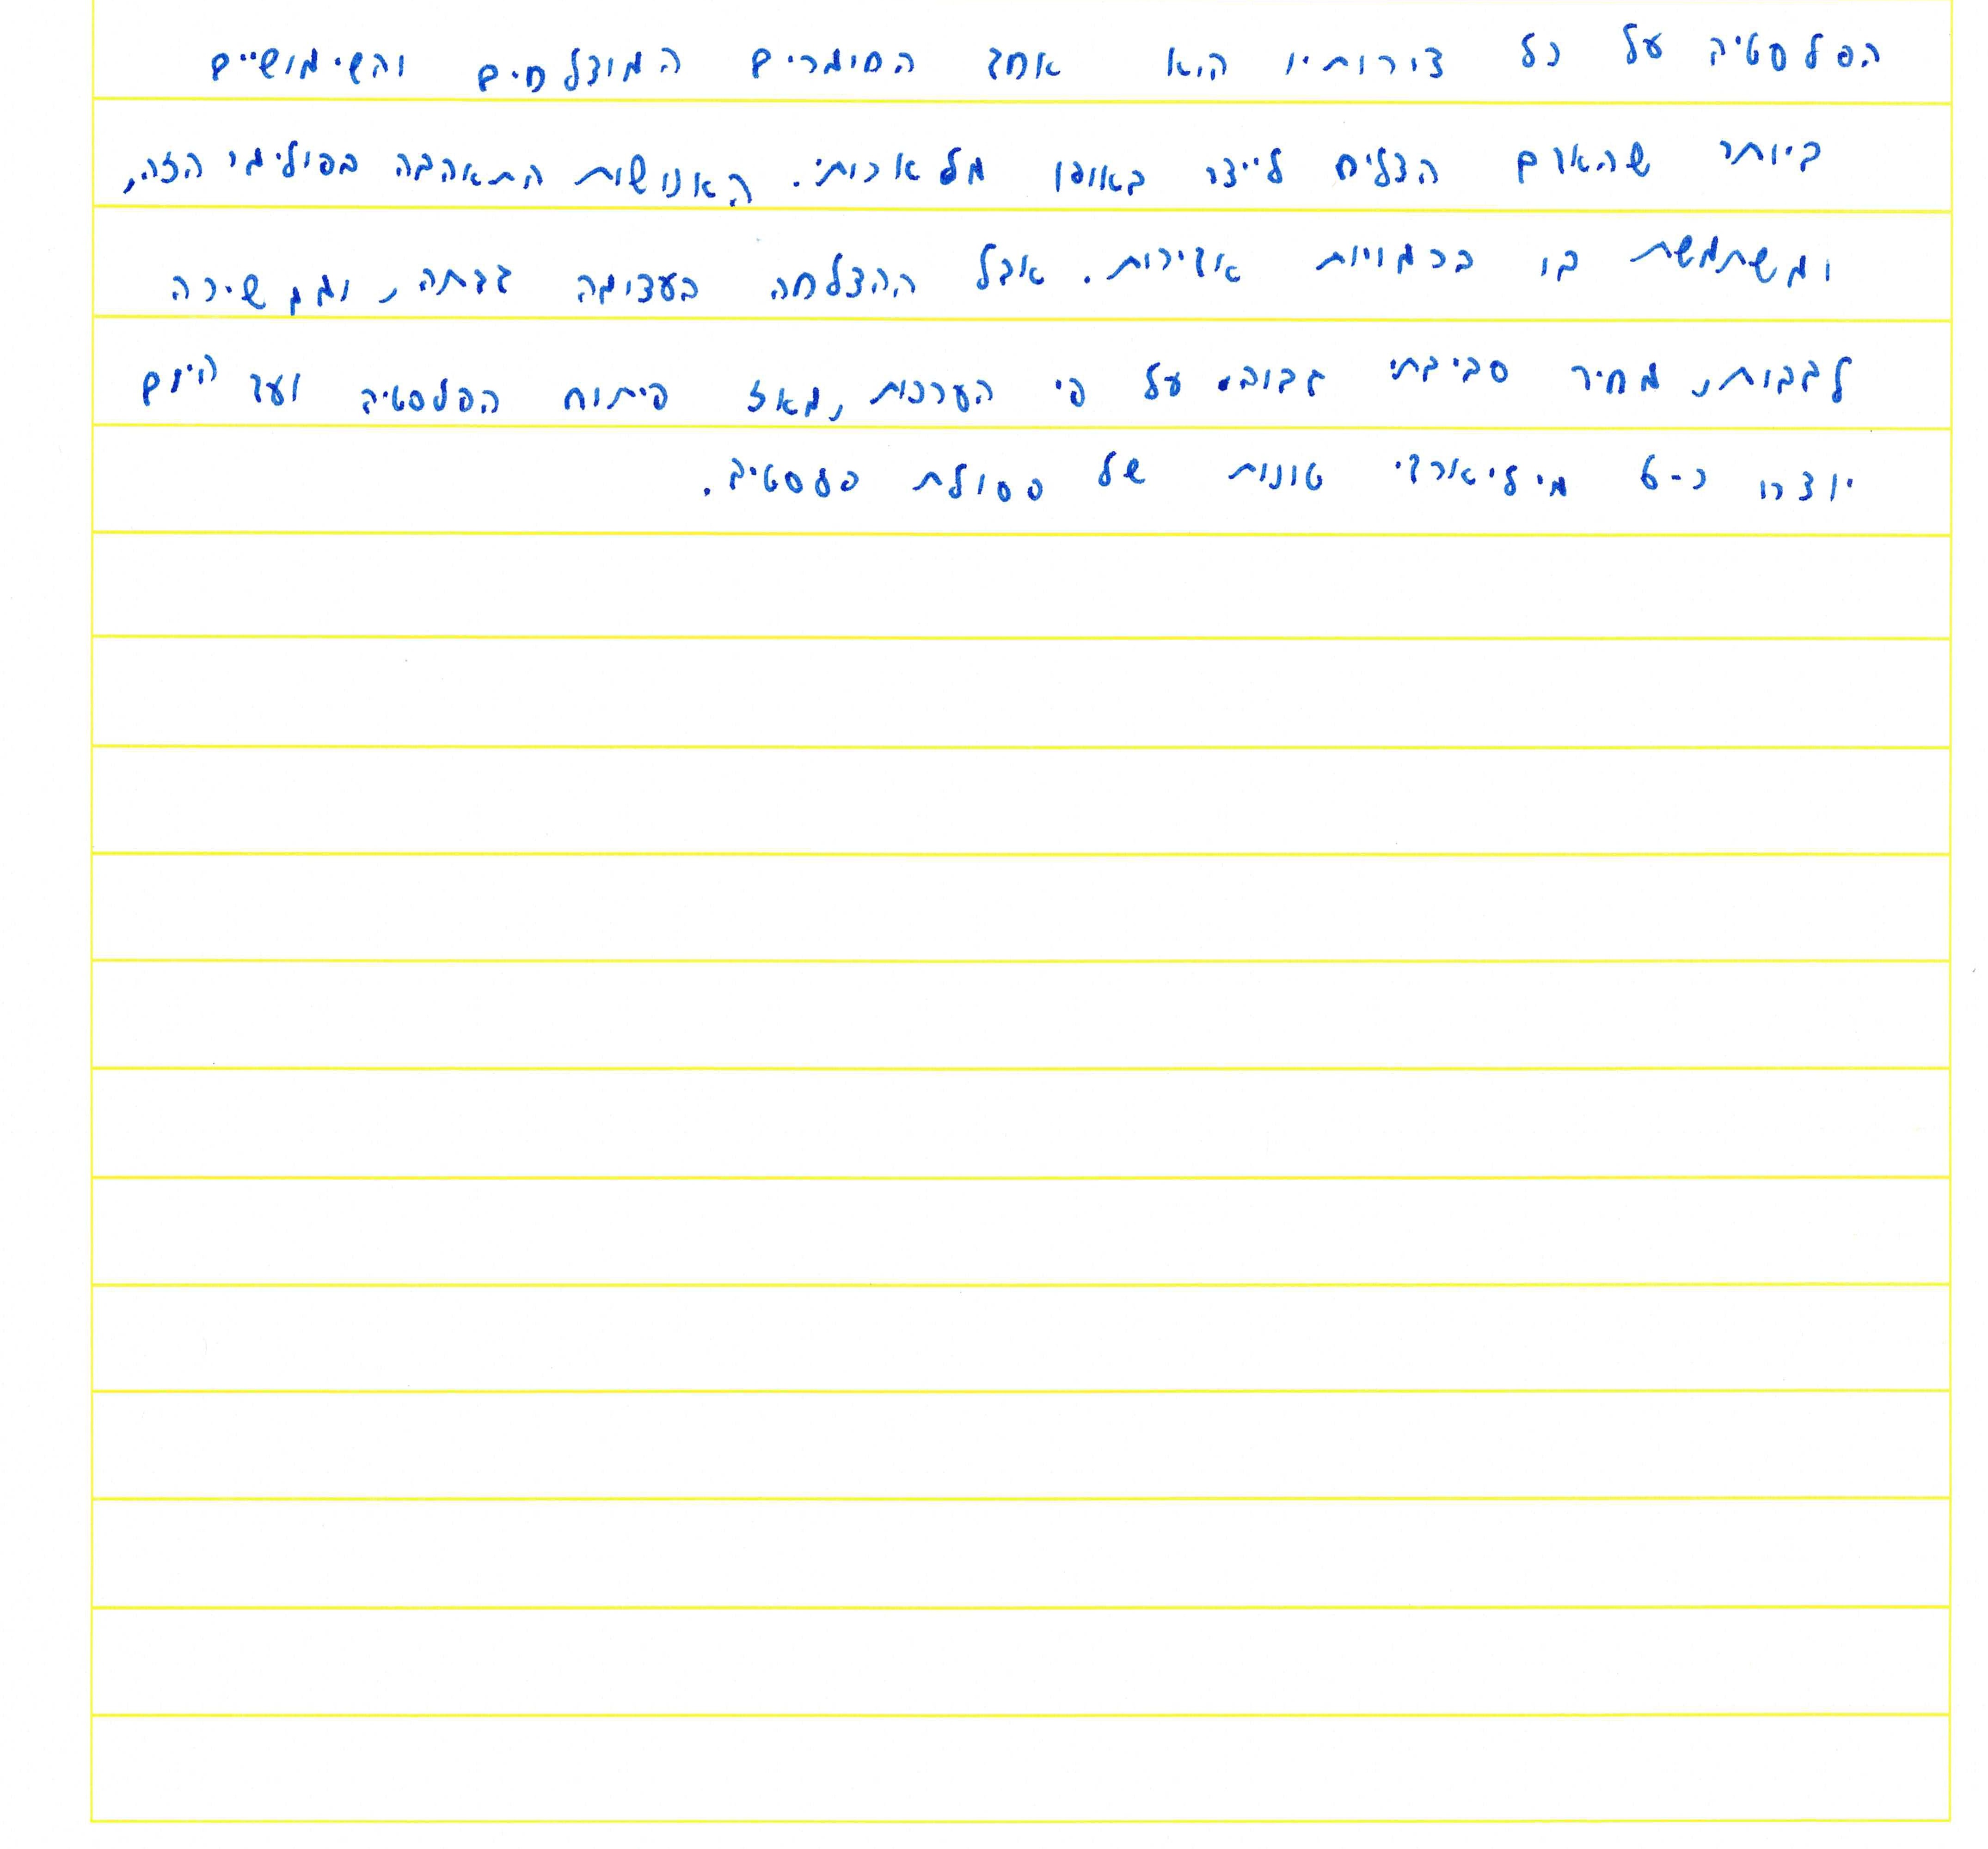 הפלסטיק על כל צורותיו הוא אחד החומרים המוצלחים והשימושיים
ביותר שהאדם הצליח לייצר באופן מלאכותי. האנושות התאהבה בפולימר הזה,
ומשתמשת בו בכמויות אדירות. אבל ההצלחה בעצימה גבתה, וממשיכה
לגבות, מחיר סביבתי גבוה. על פי הערכות, מאז פיתוח הפלסטיק ועד היום
יוצרו כ-6 מיליארדי טונות של פסולת פלסטיק.